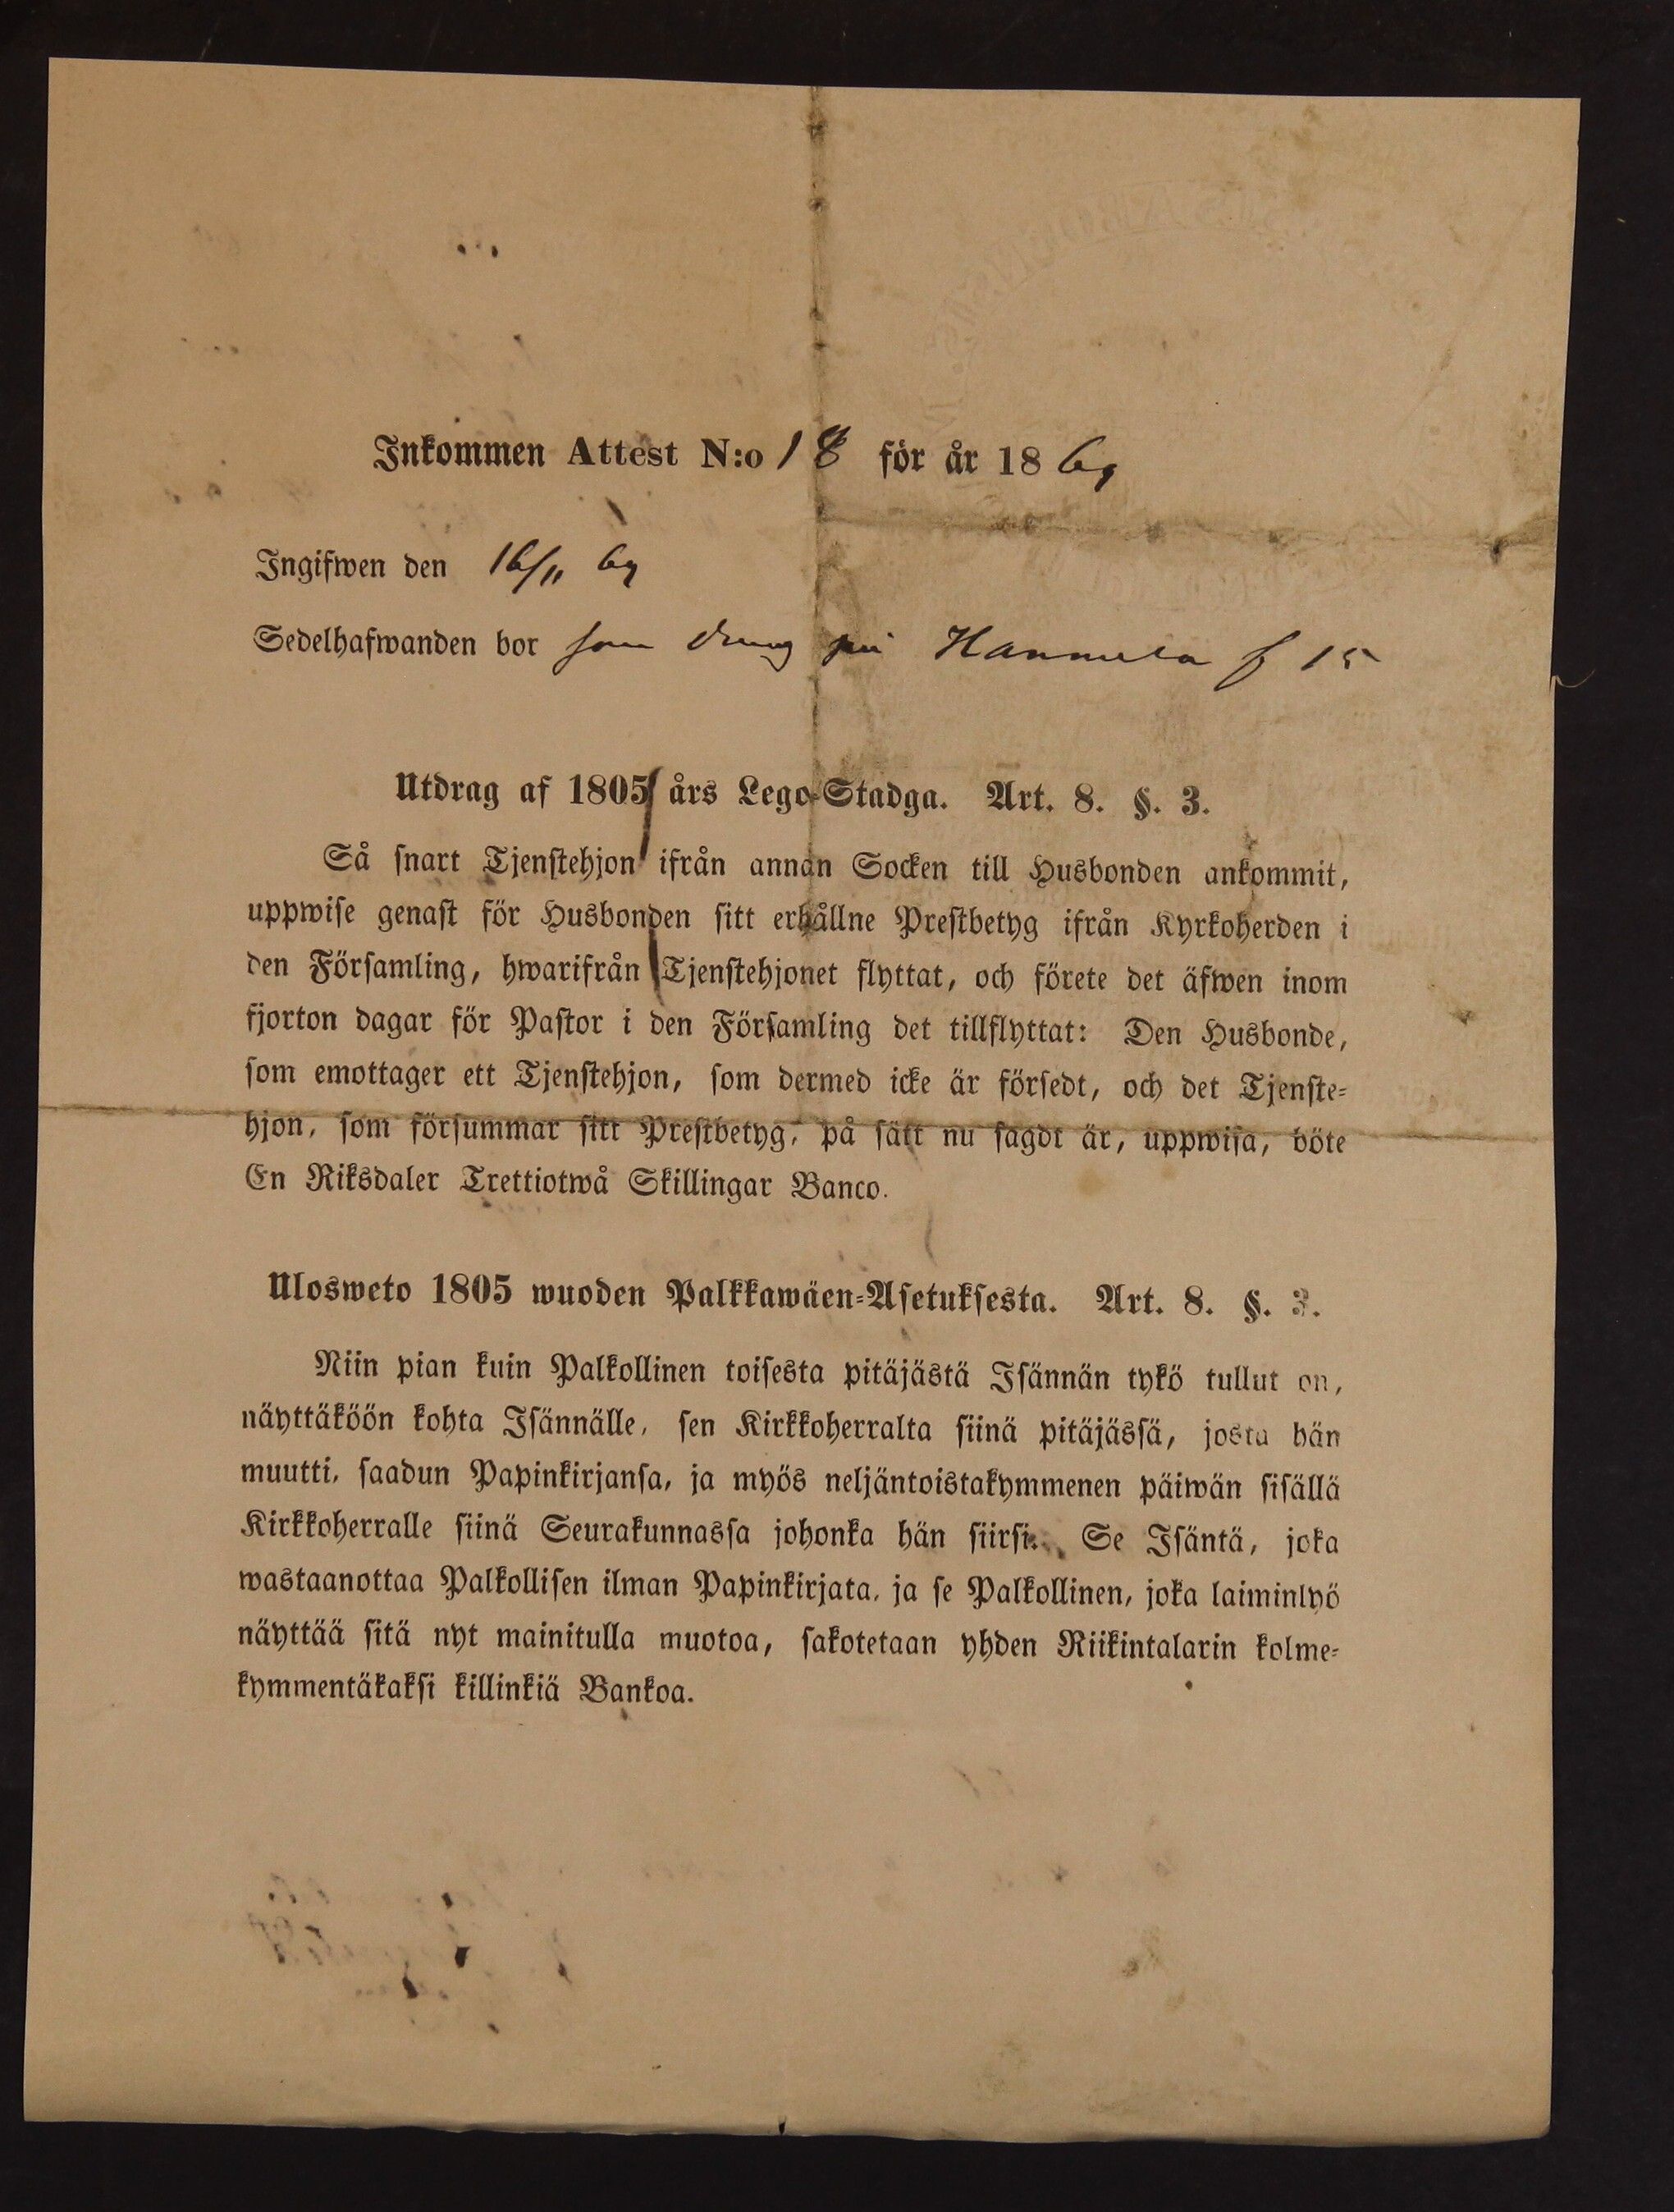 Inkommen Attest N:o 18 för år 1869
Ingifwen den 16/11 69
Sedelhafwanden bor som dreng på Hannula f 15
Utdrag af 1805 års Lego-Stadga. Art. 8. §. 3.
Så snart Tjenstehjon ifrån annan Socken till Husbonden ankommit,
uppwise genast för Husbonden sitt erhållne Prestbetyg ifrån Kyrkoherden i
den Församling, hwarifrån Tjenstehjonet flyttat, och förete det äfwen inom
fjorton dagar för Pastor i den Församling det tillflyttat: Den Husbonde,
som emottager ett Tjenstehjon, som dermed icke är försedt, och det Tjenste-
hjon, som försummar sitt Prestbetyg, på sätt nu sagdt är, uppwisa, böte
En Riksdaler Trettiotwå Skillingar Banco.
Ulosweto 1805 wuoden Palkkawäen-Asetuksesta. Art. 8. §. 3.
Niin pian kuin Palkollinen toisesta pitäjästä Isännän tykö tullut on,
näyttäköön kohta Isännälle, sen Kirkkoherralta siinä pitäjässä, josta hän
muutti, saadun Papinkirjansa, ja myös neljäntoistakymmenen päiwän sisällä
Kirkkoherralle siinä Seurakunnassa johonka hän siirsi. Se Isäntä, joka
wastaanottaa Palkollisen ilman Papinkirjata, ja se Palkollinen, joka laiminlyö
näyttää sitä nyt mainitulla muotoa, sakotetaan yhden Riikintalarin kolme-
kymmentäkaksi killinkiä Bankoa.